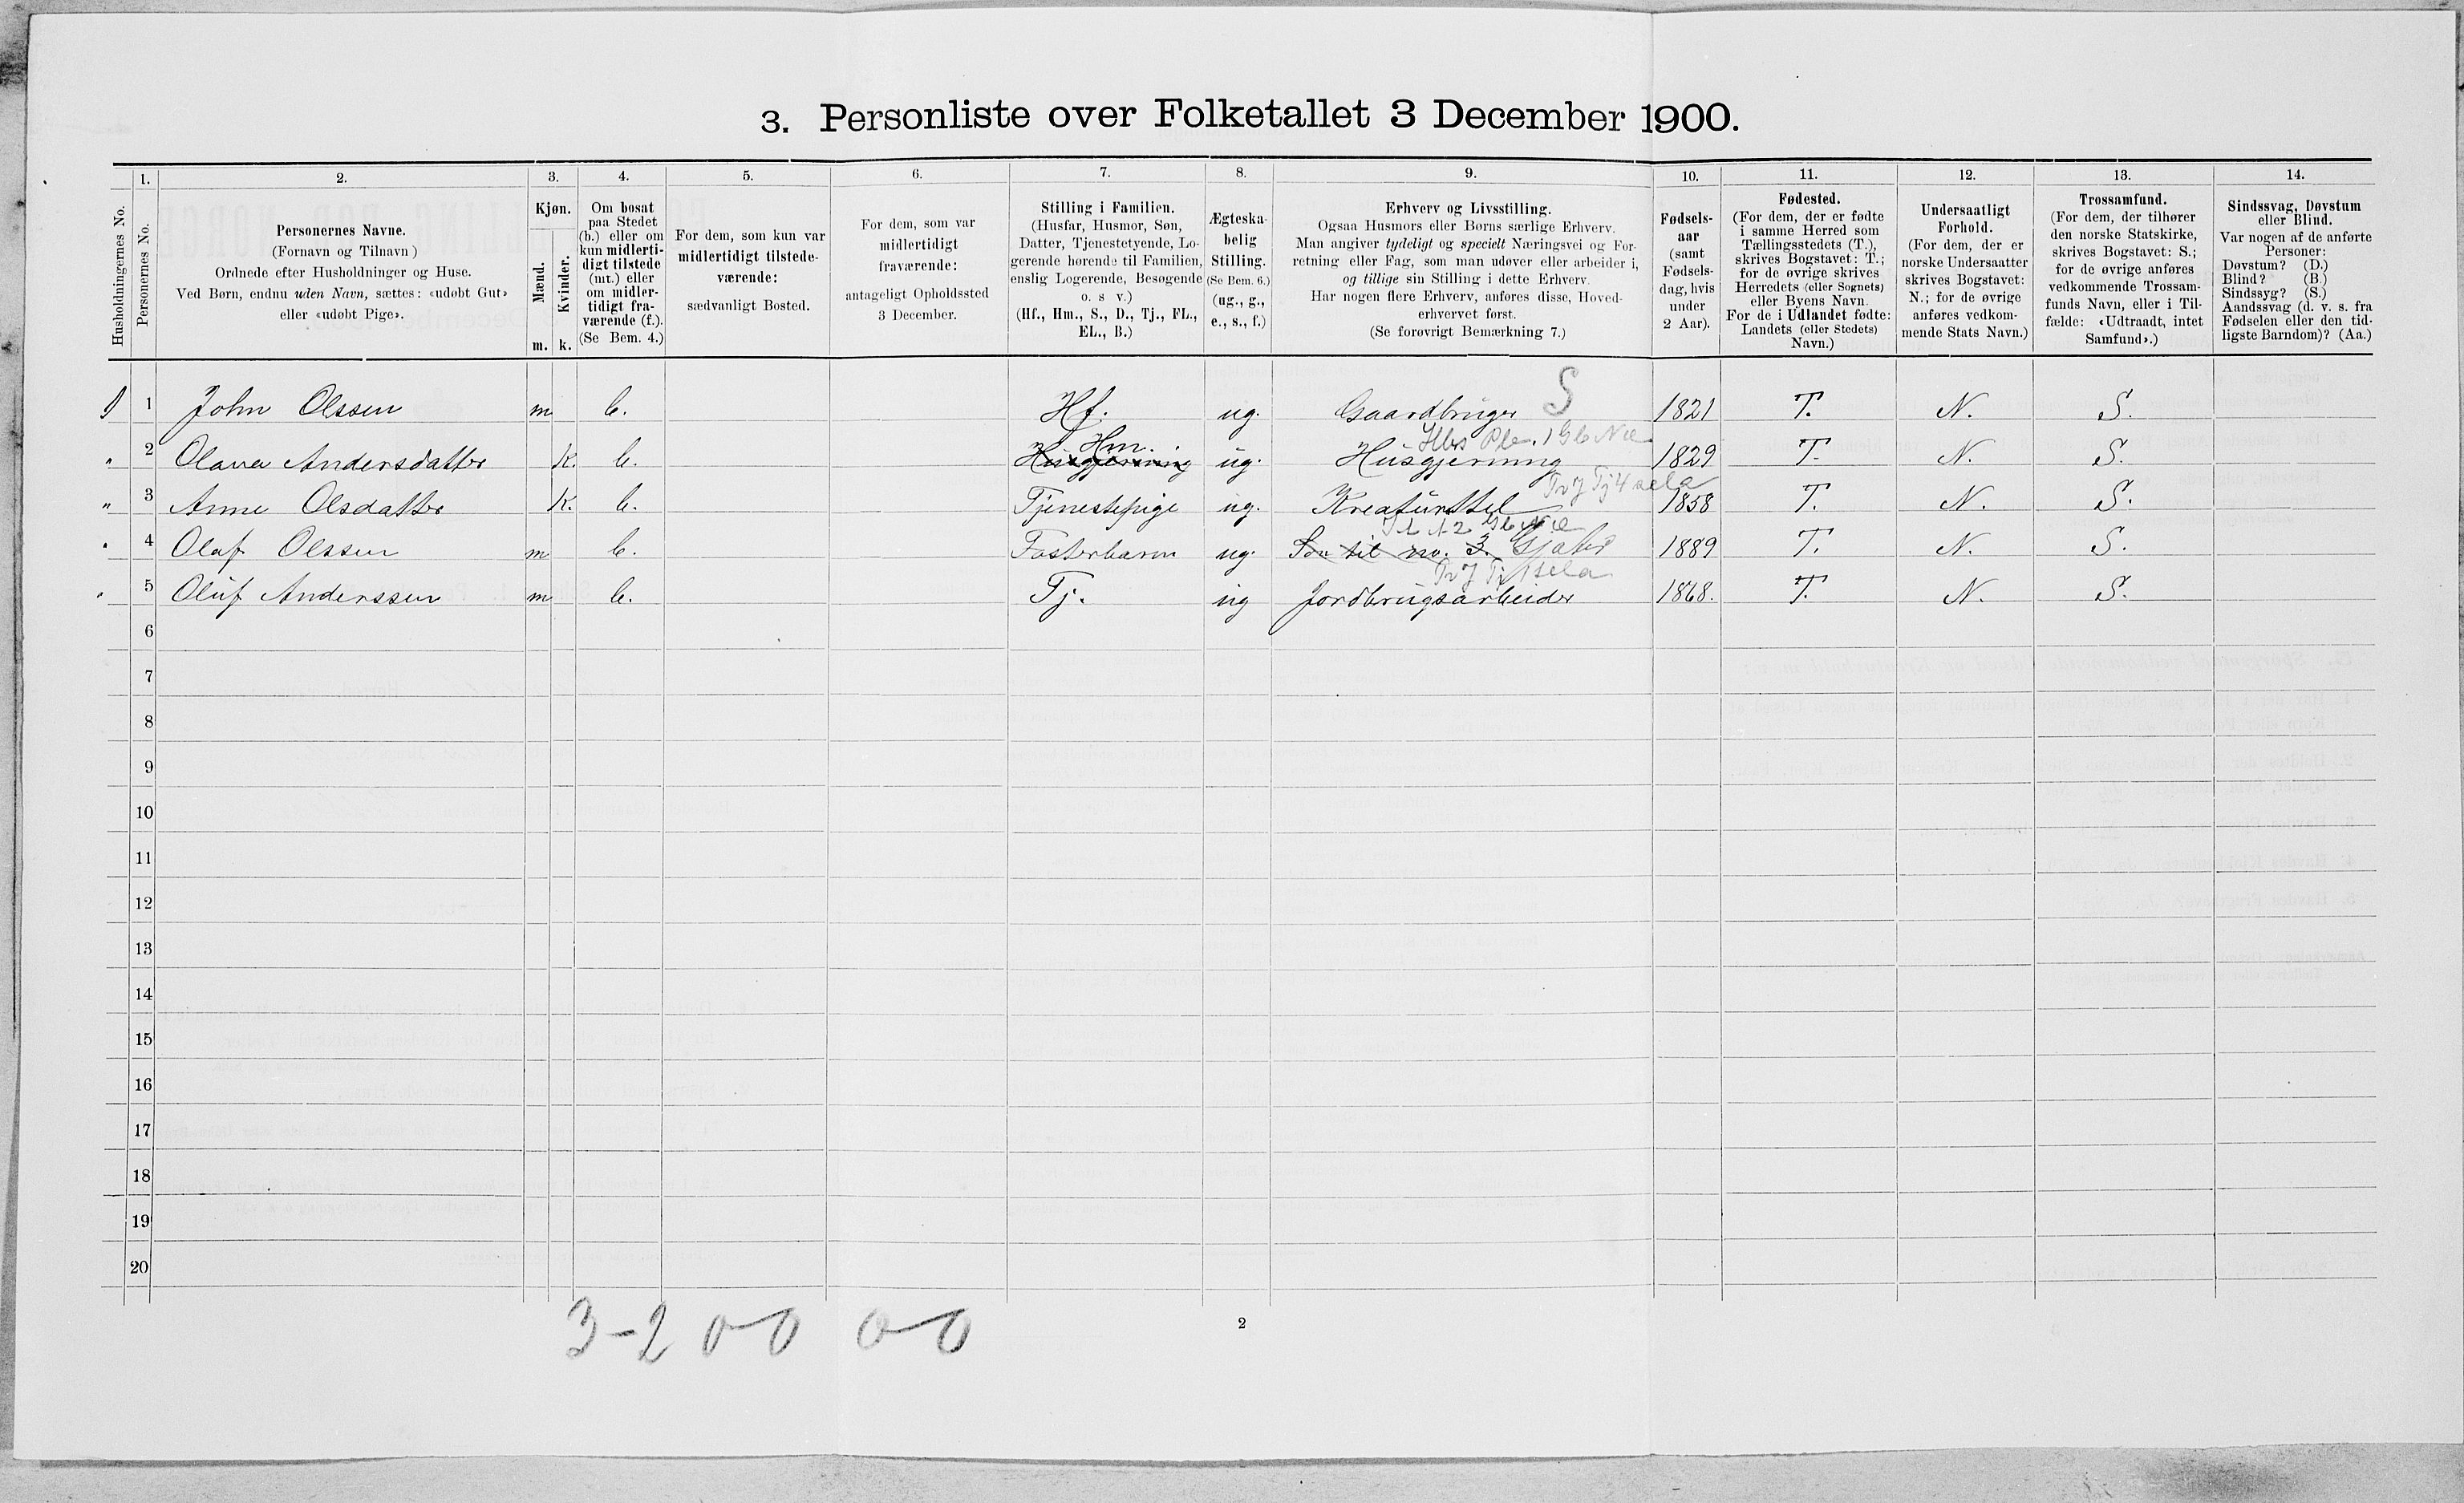 3. Personliste over Folketallet 3 December 1900.
Husholdningernes No.
1.
Personernes No.
2.
Personernes Navne.
(Fornavn og Tilnavn)
Ordnede efter Husholdninger og Huse.
Ved Børn, endnu uden Navn, sættes: «udøbt Gut»
eller «udøbt Pige».
3.
Kjøn.
Mænd.
Kvinder.
m. k.
4.
Om bosat
paa Stedet
(b.) eller om
kun midlerti-
digt tilstede
(mt.) eller
om midler-
tidigt fra-
værende (f.).
(Se Bem. 4.)
5.
For dem, som kun var
midlertidigt tilstede-
værende:
sædvanligt Bosted.
6.
For dem, som var
midlertidigt
fraværende:
antageligt Opholdssted
3 December.
7.
Stilling i Familien.
(Husfar, Husmor, Søn,
Datter, Tjenestetyende, Lo-
gerende hørende til Familien,
enslig Logerende, Besøgende
o. s v.)
(Hf., Hm., S., D., Tj., FL.,
EL., B.)
8.
Ægteska-
belig
Stilling.
(Se Bem. 6.)
(ug., g.,
e., s., f.)
9.
Erhverv og Livsstilling.
Ogsaa Husmors eller Børns særlige Erhverv.
Man angiver tydeligt og specielt Næringsvei og For-
retning eller Fag, som man udøver eller arbeider i,
og tillige sin Stilling i dette Erhverv.
Har nogen flere Erhverv, anføres disse, Hoved-
erhvervet først.
(Se forøvrigt Bemærkning 7.)
10.
Fødsels-
aar
(samt
Fødsels-
dag, hvis
under
2 Aar).
11.
Fødested.
(For dem, der er fødte
i samme Herred som
Tællingsstedets (T.),
skrives Bogstavet: T.;
for de øvrige skrives
Herredets (eller Sognets)
eller Byens Navn.
For de i Udlandet fødte:
Landets (eller Stedets)
Navn.)
12.
Undersaatligt
Forhold.
(For dem, der er
norske Undersaatter
skrives Bogstavet:
N.; for de øvrige
anføres vedkom-
mende Stats Navn.)
13.
Trossamfund.
(For dem, der tilhører
den norske Statskirke,
skrives Bogstavet: S.;
for de øvrige anføres
vedkommende Trossam-
funds Navn, eller i Til-
fælde: «Udtraadt, intet
Samfund».)
14.
Sindssvag, Døvstum
eller Blind.
Var nogen af de anførte
Personer:
Døvstum? (D.)
Blind? (B.)
Sindssyg? (S.)
Aandssvag (d. v. s. fra
Fødselen eller den tid-
ligste Barndom)? (Aa.)
1 John Olssen m b. Hf. ug. Gaardbruger S 1821 T. N. S.
Hm.
" 2 Olava Andersdatter k. b. Husgjerning ug. Husgjerning 1829 T. N. S.
" 3 Anne Olsdatter k. b. Tjenestepige ug. Kreaturstel 1858 T. N. S.
" 4 Olaf Olssen m b. Fosterbarn ug. Søn til no. 3. Gjæter 1889 T. N. S.
" 5 Oluf Anderssen m b. Tj. ug Jordbrugsarbeider 1868. T. N. S.
6
7
8
9
10
11
12
13
14
15
16
17
18
19
20
3-2 0-0 0-0
2